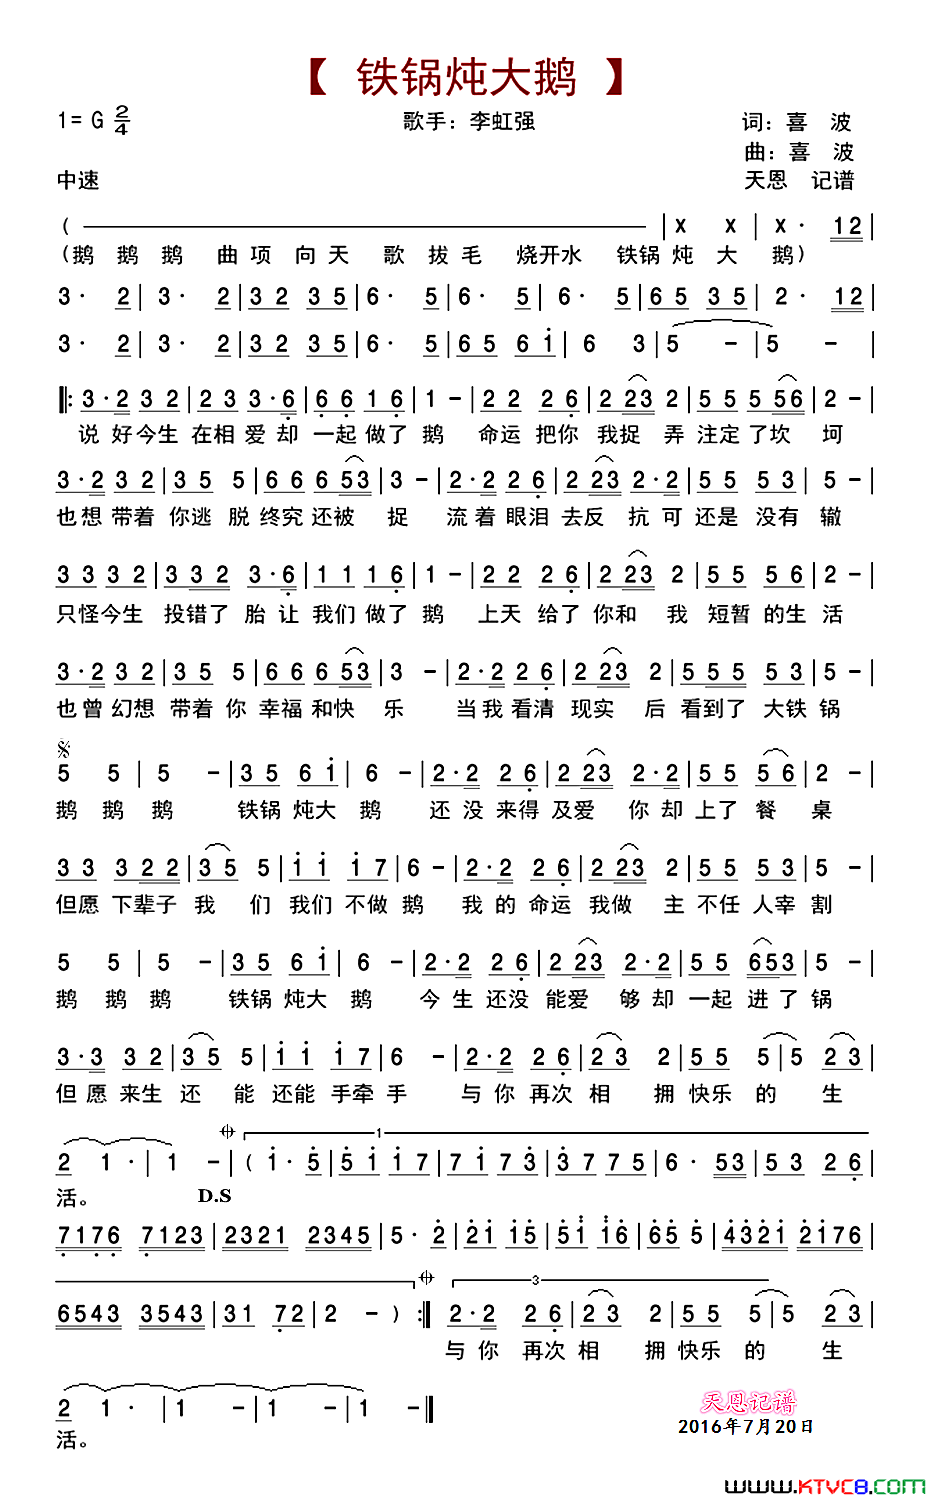 【 铁锅炖大鹅 】
1= G 2/4
歌手：李虹强
词：喜 波
曲：喜 波
中速
天恩 记谱
( ———— | X X | X · 12 |
(鹅 鹅 鹅 曲 项 向 天 歌 拔 毛 烧开水 铁锅 炖 大 鹅)
3 · 2 | 3 · 2 | 3 2 3 5 | 6 · 5 | 6 · 5 | 6 · 5 | 6 5 3 5 | 2 · 12 |
3 · 2 | 3 · 2 | 3 2 3 5 | 6 · 5 | 6 5 6 i | 6 3 | 5 - | 5 - |
‖: 3 · 2 3 2 | 2 3 3 · 6 | 6 6 1 6 | 1 - | 2 2 2 6 | 2 23 2 | 5 5 5 56 | 2 - |
说 好今生 在相 爱却 一起 做了 鹅 命运 把你 我捉 弄 注定 了坎 坷
3 · 2 3 2 | 3 5 5 | 6 6 6 53 | 3 - | 2 · 2 2 6 | 2 23 2 · 2 | 5 5 5 3 | 5 - |
也想 带着 你逃 脱 终究 还被 捉 流着 眼泪 去反 抗 可 还是 没有 辙
3 3 3 2 | 3 32 3 · 6 | 1 1 1 6 | 1 - | 2 2 2 6 | 2 23 2 | 5 5 5 6 | 2 - |
只怪今生 投错了 胎 让 我们 做了 鹅 上天 给了 你和 我 短暂 的生 活
3 · 2 3 2 | 3 5 5 | 6 6 6 53 | 3 - | 2 · 2 2 6 | 2 23 2 | 5 5 5 5 3 | 5 - |
也曾 幻想 带着 你 幸福 和快 乐 当我 看清 现实 后 看到了 大铁 锅
5 5 | 5 - | 3 5 6 i | 6 - | 2 · 2 2 6 | 2 23 2 · 2 | 5 5 5 6 | 2 -
鹅 鹅 鹅 铁锅 炖大 鹅 还 没 来得 及爱 你 却 上了 餐 桌
3 3 3 22 | 3 5 5 | i i i 7 | 6 - | 2 · 2 2 6 | 2 23 2 | 5 5 5 3 | 5 - |
但愿 下辈子 我 们 我们 不做 鹅 我 的 命运 我做 主 不任 人宰 割
5 5 | 5 - | 3 5 6 i | 6 - | 2 · 2 2 6 | 2 23 2 · 2 | 5 5 653 | 5 - |
鹅 鹅 鹅 铁锅 炖大 鹅 今 生 还没 能爱 够 却 一起 进了 锅
3 · 3 3 2 | 3 5 5 | i i i 7 | 6 - | 2 · 2 2 6 | 2 3 2 | 5 5 5 | 5 2 3 |
但愿 来生 还 能 还能 手牵 手 与 你 再次 相 拥 快乐 的 生
1
2 1 · | 1 - | ( i · 5 | 5 i i 7 | 7 i 7 3 | 3 7 7 5 | 6 · 53 | 5 3 2 6 |
活。 D.S
7176 7123 | 2321 2345 | 5 · 2 | 2i i5 | 5i i6 | 65 5 | 4321 2i76 |
6543 3543 | 31 72 | 2 - ) :‖
3
2 · 2 2 6 | 2 3 2 | 5 5 5 | 5 2 3 |
与 你 再次 相 拥 快乐 的 生
2 1 · | 1 - | 1 - | 1 - ‖
活。
天恩记谱
2016年7月20日
www.KTVC8.com